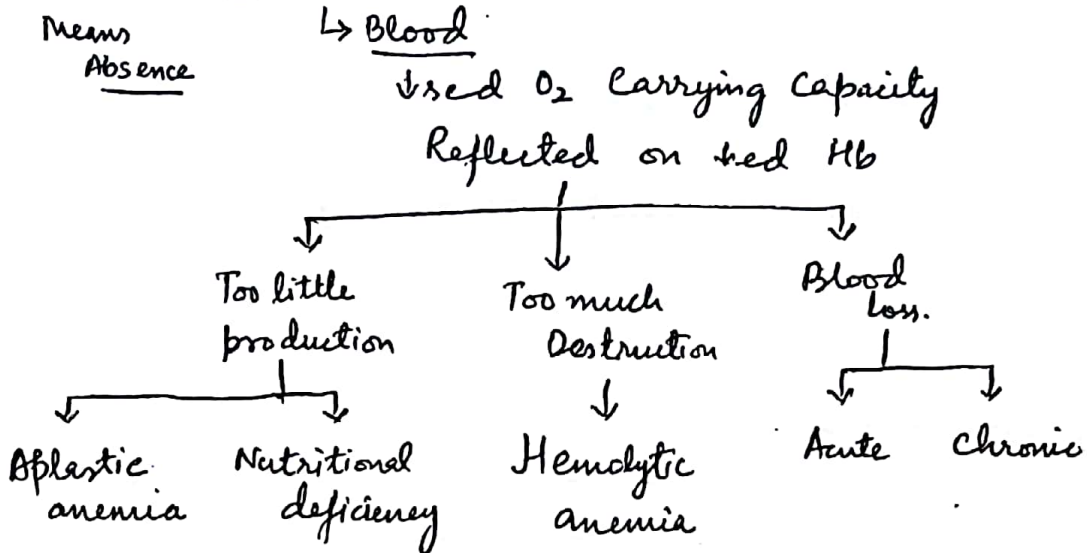 Means
Absence
↳ Blood
↓sed O₂ Carrying Capacity
Reflected on ↓ed Hb
Too little
production
Too much
Destruction
Blood
loss.
Aplastic
anemia
Nutritional
deficiency
Hemolytic
anemia
Acute
Chronic